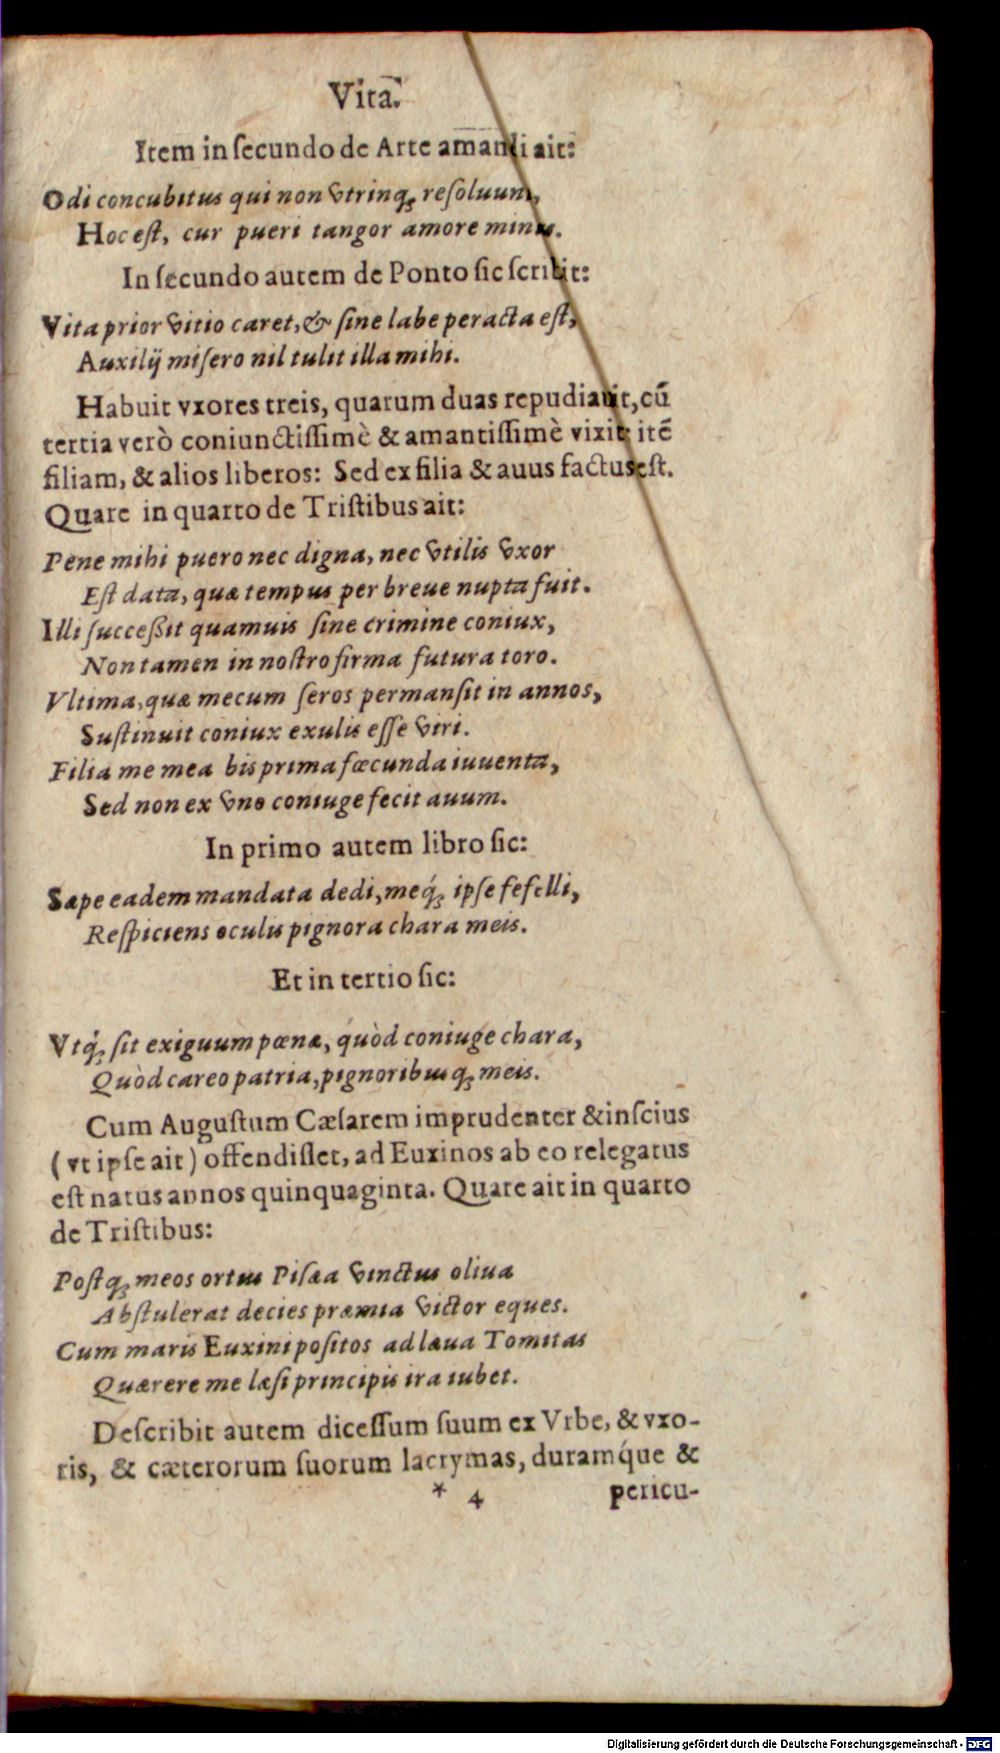 Vita.
Item in ſecundo de Arte amandi ait:
Odi concubitus qui non vtrinq; reſoluunt,
Hoc eſt, cur pueri tangor amore minus.
In ſecundo autem de Ponto ſic ſcribit:
Vita prior vitio caret, & ſine labe peracta eſt,
Auxilij miſero nil tulit illa mihi.
Habuit vxores treis, quarum duas repudiauit, cū
tertia verò coniunctiſſimè & amantiſſimè vixit: itē
filiam, & alios liberos: Sed ex filia & avus factus eſt.
Quare in quarto de Triſtibus ait:
Pene mihi puero nec digna, nec vtilis vxor
Eſt data, quæ tempus per breue nupta fuit.
Illi ſucceßit quamuis ſine crimine coniux,
Non tamen in noſtro firma futura toro.
Vltima, quæ mecum ſeros permanſit in annos,
Suſtinuit coniux exulis eſſe viri.
Filia me mea bis prima fœcunda iuuenta,
Sed non ex vno coniuge fecit auum.
In primo autem libro ſic:
Sæpe eadem mandata dedi, meq́; ipſe fefelli,
Reſpiciens oculis pignora chara meis.
Et in tertio ſic:
Vtq́; ſit exiguum pœnæ, quòd coniuge chara,
Quòd careo patria, pignoribusq; meis.
Cum Auguſtum Cæſarem imprudenter & inſcius
(vt ipſe ait) offendiſſet, ad Euxinos ab eo relegatus
eſt natus annos quinquaginta. Quare ait in quarto
de Triſtibus:
Poſtq; meos ortus Piſæa vinctus oliua
Abſtulerat decies præmia victor eques.
Cum maris Euxini poſitos ad læua Tomitas
Quærere me læſi principis ira iubet.
Deſcribit autem diceſſum ſuum ex Vrbe, & vxo-
ris, & cæterorum ſuorum lacrymas, duramq́ue &
* 4 pericu-
Digitalisierung gefördert durch die Deutsche Forschungsgemeinschaft - DFG